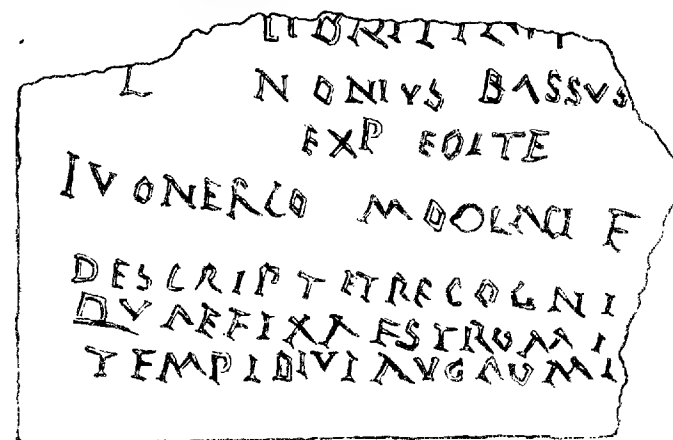 L NONIVS BASSVS
EXP EQITE
IVONERCO MOOLNCI F
DESCRIPT ET RECOGNI
QVAE FIXA EST ROMAI
TEMPL DIVI AVG AD MI